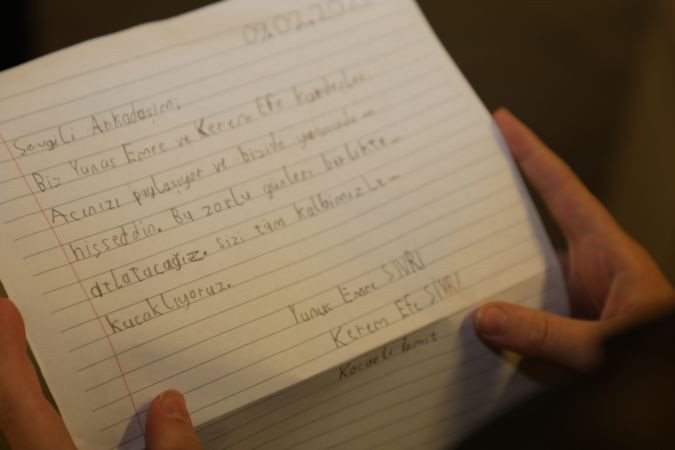 09.02.202
Sevgeli Arkadaşım,
Biz Yunus Emre ve Kerem Efe Kardeşler
Acınızı paylaşıyor ve bizide yanınızda-
hisseddin. Bu zorlu günleri birlikte-
atlatacağız. sizi tüm kalbimizle-
kucaklıyoruz.
Yunus Emre SİVRİ
Kerem Efe SİVRİ
Kocaeli İzmit